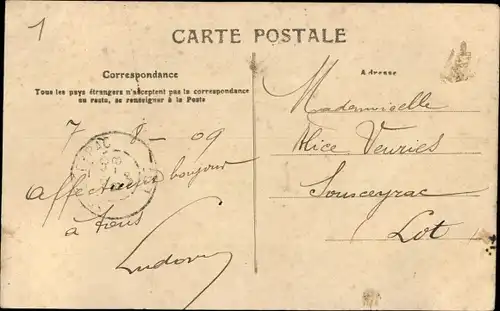 1
CARTE POSTALE
Correspondance
Tous les pays étrangers n'acceptent pas la correspondance
au recto, se renseigner à la Poste
Adresse
7 - 8 - 09
Affectueux bonjour
à tous
Ludovic
Mademoiselle
Alice Veuries
Sousceyrac
Lot